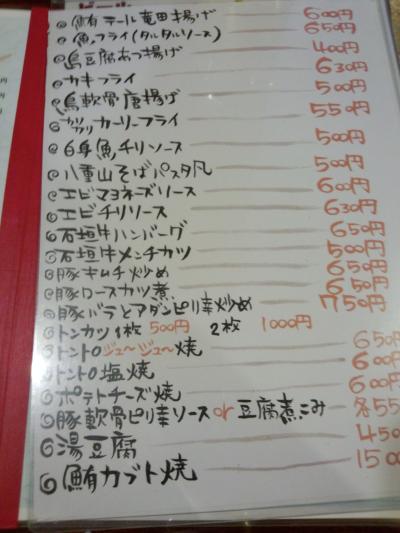 ビール
◎鮪テール竜田揚げ 600円
◎魚フライ(タルタルソース) 650円
◎島豆腐あつ揚げ 400円
◎カキフライ 630円
◎鳥軟骨唐揚げ 500円
◎カリカリカーリーフライ 550円
◎白身魚チリソース 500円
◎八重山そばパスタ風 500円
◎エビマヨネーズソース 600円
◎エビチリソース 630円
◎石垣牛ハンバーグ 650円
◎石垣牛メンチカツ 500円
◎豚キムチ炒め 650円
◎豚ロースカツ煮 650円
◎豚バラとアダンピリ辛炒め 750円
◎トンカツ1枚 500円 2枚 1000円
◎トントロジュ〜ジュ〜焼 650
◎トントロ塩焼 600円
◎ポテトチーズ焼 600円
◎豚軟骨ピリ辛ソース or 豆腐煮こみ 各55
◎湯豆腐 450
◎鮪カブト焼 150